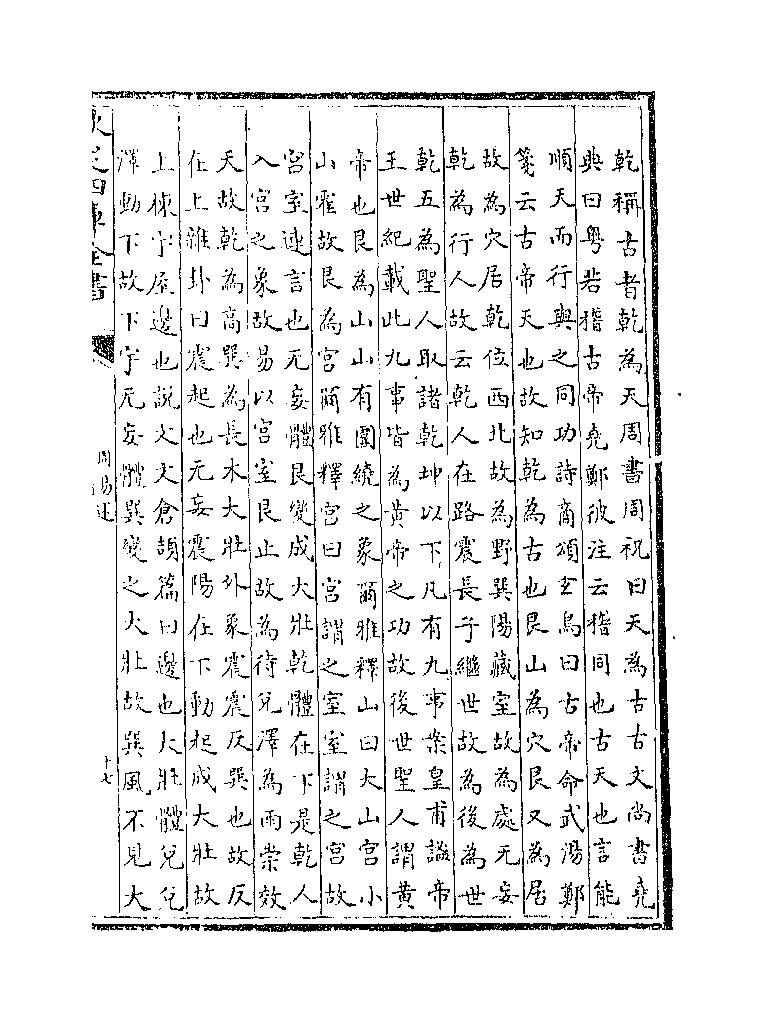 乾稱古者乾為天周書周祝曰天為古古文尚書堯
典曰粤若稽古帝堯鄭彼注云稽同也古天也言能
順天而行與之同功詩商頌玄鳥曰古帝命武湯鄭
箋云古帝天也故知乾為古也艮山為穴艮又為居
故為穴居乾位西北故為野巽陽藏室故為處无妄
乾為行人故云乾人在路震長子繼世故為後為世
乾五為聖人取諸乾坤以下凡有九事案皇甫謐帝
王世紀載此九事皆為黄帝之功故後世聖人謂黄
帝也艮為山山有圍繞之象爾雅釋山曰大山宫小
山霍故艮為宫爾雅釋宫曰宫謂之室室謂之宫故
宫室連言也无妄體艮變成大壯乾體在下是乾人
入宫之象故易以宫室艮止故為待兌澤為雨崇效
天故乾為高巽為長木大壯外象震震反巽也故反
在上雜卦曰震起也无妄震陽在下動起成大壯故
上棟宇屋邊也説文文倉頡篇曰邊也大壯體兌兌
澤動下故下宇无妄體巽變之大壯故巽風不見大
欽定四庫全書
周易述
十七